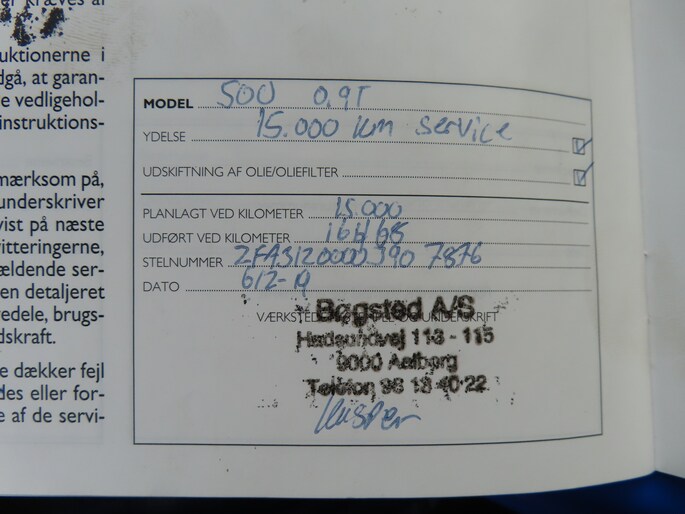 uktionerne i
dgå, at garan-
e vedligehol-
instruktions-
mærksom på,
underskriver
vist på næste
vitteringerne,
ældende ser-
en detaljeret
redele, brugs-
dskraft.
e dækker fejl
des eller for-
e af de servi-
MODEL 500 0.9T
YDELSE 15.000 km service
UDSKIFTNING AF OLIE/OLIEFILTER
PLANLAGT VED KILOMETER 15.000
UDFØRT VED KILOMETER
STELNUMMER
DATO 6/2-14
VÆRKSTEDETS STEMPEL OG UNDERSKRIFT
Bøgsted A/S
Hadsundvej 113 - 115
9000 Aalborg
Telefon 96 18 40 22